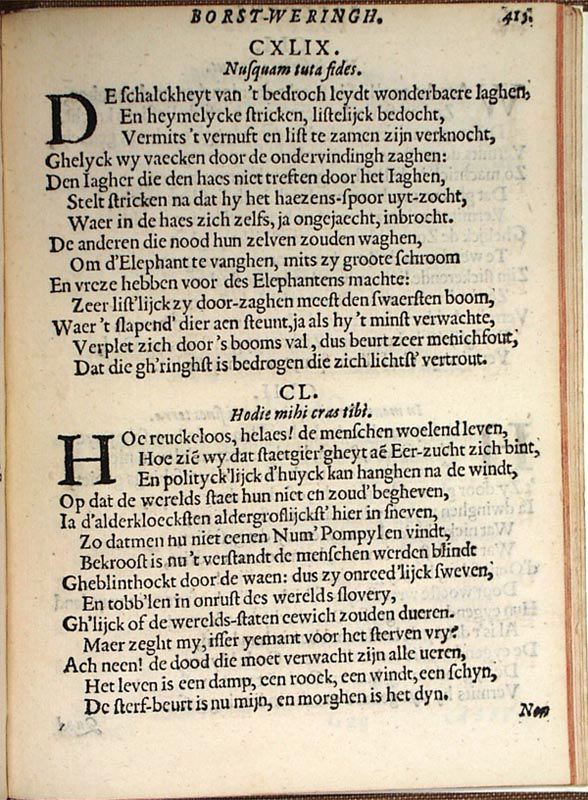 BORST-WERINGH.
415.
CXLIX.
Nusquam tuta fides.
DE schalckheyt van 't bedroch leydt wonderbaere laghen,
En heymelycke stricken, listelijck bedocht,
Vermits 't vernuft en list te zamen zijn verknocht,
Ghelyck wy vaecken door de ondervindingh zaghen:
Den Iagher die den haes niet treften door het Iaghen,
Stelt stricken na dat hy het haezens-spoor uyt-zocht,
Waer in de haes zich zelfs, ja ongejaecht, inbrocht.
De anderen die nood hun zelven zouden waghen,
Om d'Elephant te vanghen, mits zy groote schroom
En vreze hebben voor des Elephantens machte:
Zeer list'lijck zy door-zaghen meest den swaersten boom,
Waer 't slapend' dier aen steunt, ja als hy 't minst verwachte,
Verplet zich door 's booms val, dus beurt zeer menichfout,
Dat die gh'ringhst is bedrogen die zich lichtst' vertrout.
CL.
Hodie mihi cras tibi.
HOe reuckeloos, helaes! de menschen woelend leven,
Hoe ziē wy dat staetgier'gheyt aē Eer-zucht zich bint,
En polityck'lijck d'huyck kan hanghen na de windt,
Op dat de werelds staet hun niet en zoud' begheven,
Ia d'alderkloecksten aldergroslijckst' hier in sneven,
Zo datmen nu niet eenen Num' Pompyl en vindt,
Bekroost is nu 't verstandt de menschen werden blindt
Gheblinthockt door de waen: dus zy onreed'lijck sweven,
En tobb'len in onrust des werelds slovery,
Gh'lijck of de werelds-staten eewich zouden dueren.
Maer zeght my, isser yemant voor het sterven vry?
Ach neen! de dood die moet verwacht zijn alle ueren,
Het leven is een damp, een roock, een windt, een schyn,
De sterf-beurt is nu mijn, en morghen is het dyn.
Non